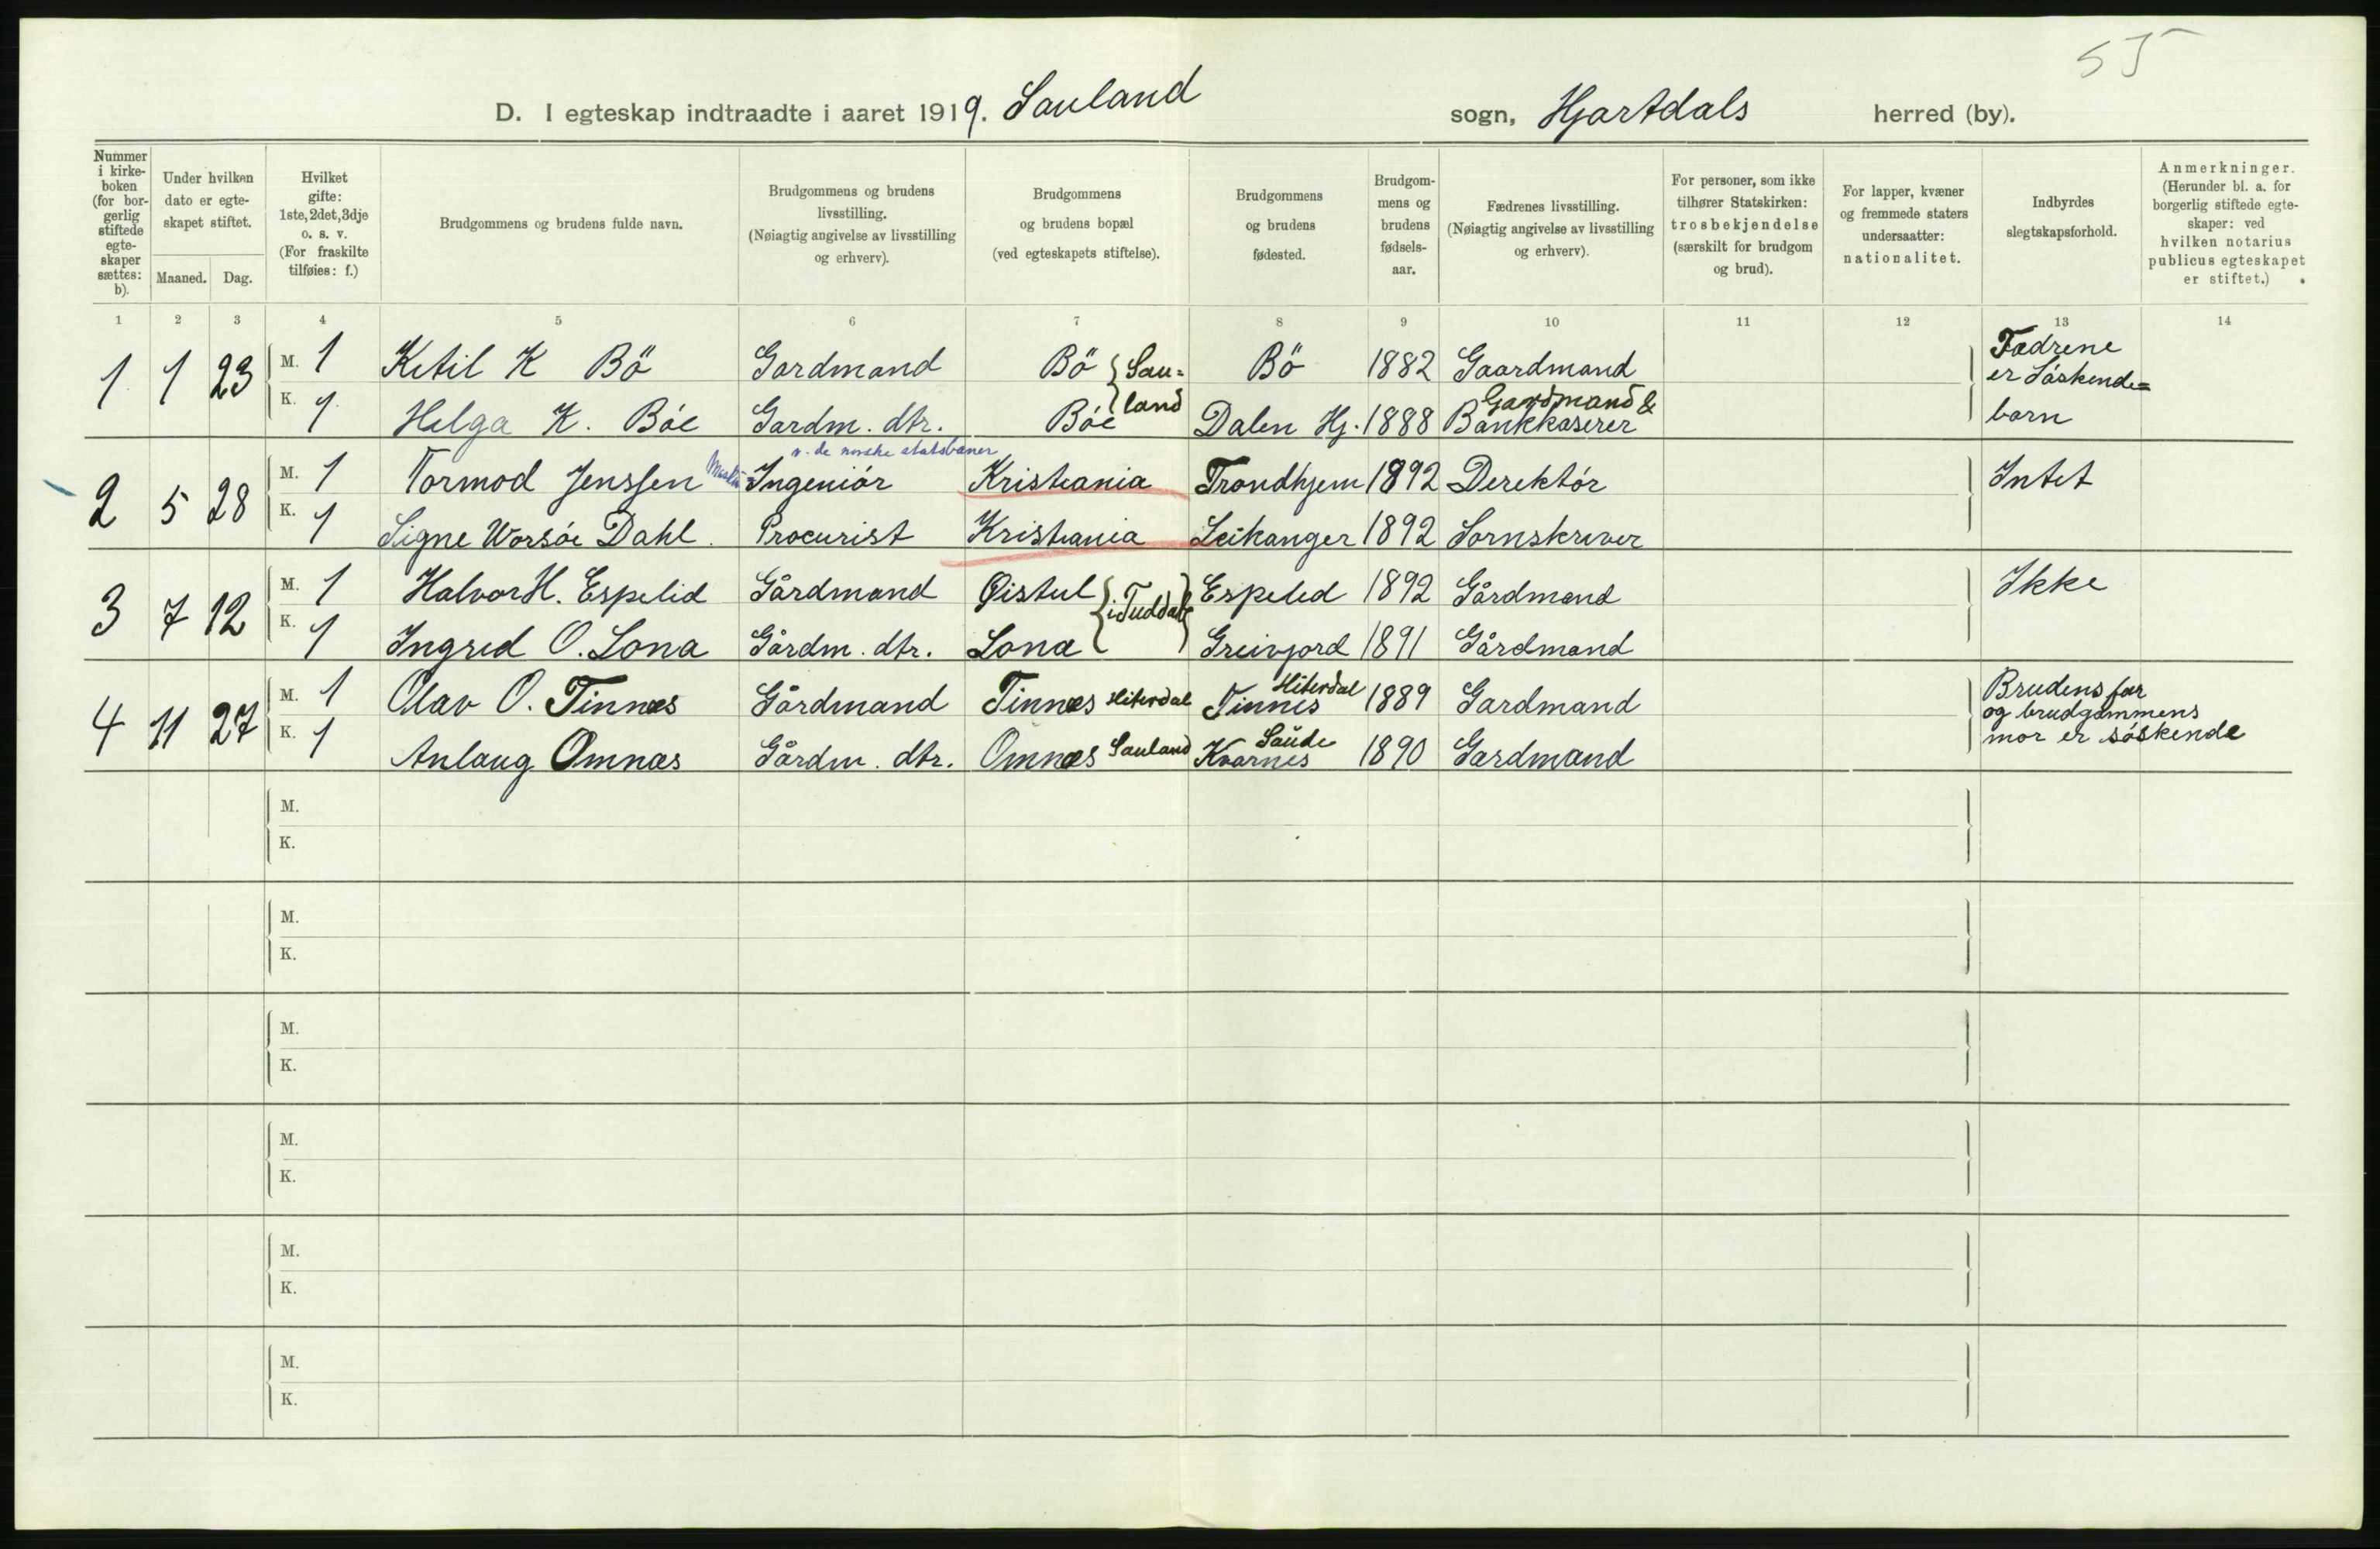 55
D. I egteskap indtraadte i aaret 1919. Sauland sogn, Hjartdals herred (by).
Nummer i kirke-boken (for bor-gerlig stiftede egte-skaper sættes: b).
Under hvilken dato er egte-skapet stiftet.
Maaned. Dag.
Hvilket gifte: 1ste, 2det, 3dje o. s. v. (For fraskilte tilføies: f.)
Brudgommens og brudens fulde navn.
Brudgommens og brudens livsstilling. (Nøiagtig angivelse av livsstilling og erhverv).
Brudgommens og brudens bopæl (ved egteskapets stiftelse).
Brudgommens og brudens fødested.
Brudgom-mens og brudens fødsels-aar.
Fædrenes livsstilling. (Nøiagtig angivelse av livsstilling og erhverv).
For personer, som ikke tilhører Statskirken: trosbekjendelse (særskilt for brudgom og brud).
For lapper, kvæner og fremmede staters undersaatter: nationalitet.
Indbyrdes slegtskapsforhold.
Anmerkninger. (Herunder bl. a. for borgerlig stiftede egte-skaper: ved hvilken notarius publicus egteskapet er stiftet.)
1 2 3 4 5 6 7 8 9 10 11 12 13 14
1 1 23 M. 1 Ketil K Bö Gardmand Bö Sau= Bö 1882 Gaardmand Fædrene er Söskende=
K. 1 Helga K. Böe Gardm. dtr. Böe land Dalen Hj. 1888 Gardmand & Bankkaserer barn
v. de norske statsbaner
2 5 28 M. 1 Tormod Jenssen Maskin Ingeniör Kristiania Trondhjem 1892 Derektör Intet
K. 1 Signe Worsöe Dahl. Procurist Kristiania Leikanger 1892 Sornskriver
3 7 12 M. 1 Halvor H. Espelid Gårdmand Øistul i Tuddal Espelid 1892 Gårdmand Ikke
K. 1 Ingrid O. Lona Gårdm. dtr. Lona Greivjord 1891 Gårdmand
4 11 27 M. 1 Olav O. Tinnes Gårdmand Tinnes Hiterdal Tinnes Hiterdal 1889 Gardmand Brudens far og brudgommens
K. 1 Anlaug Omnæs Gårdm. dtr. Omnæs Sauland Kvarnes Saude 1890 Gardmand mor er söskende
M.
K.
M.
K.
M.
K.
M.
K.
M.
K.
M.
K.